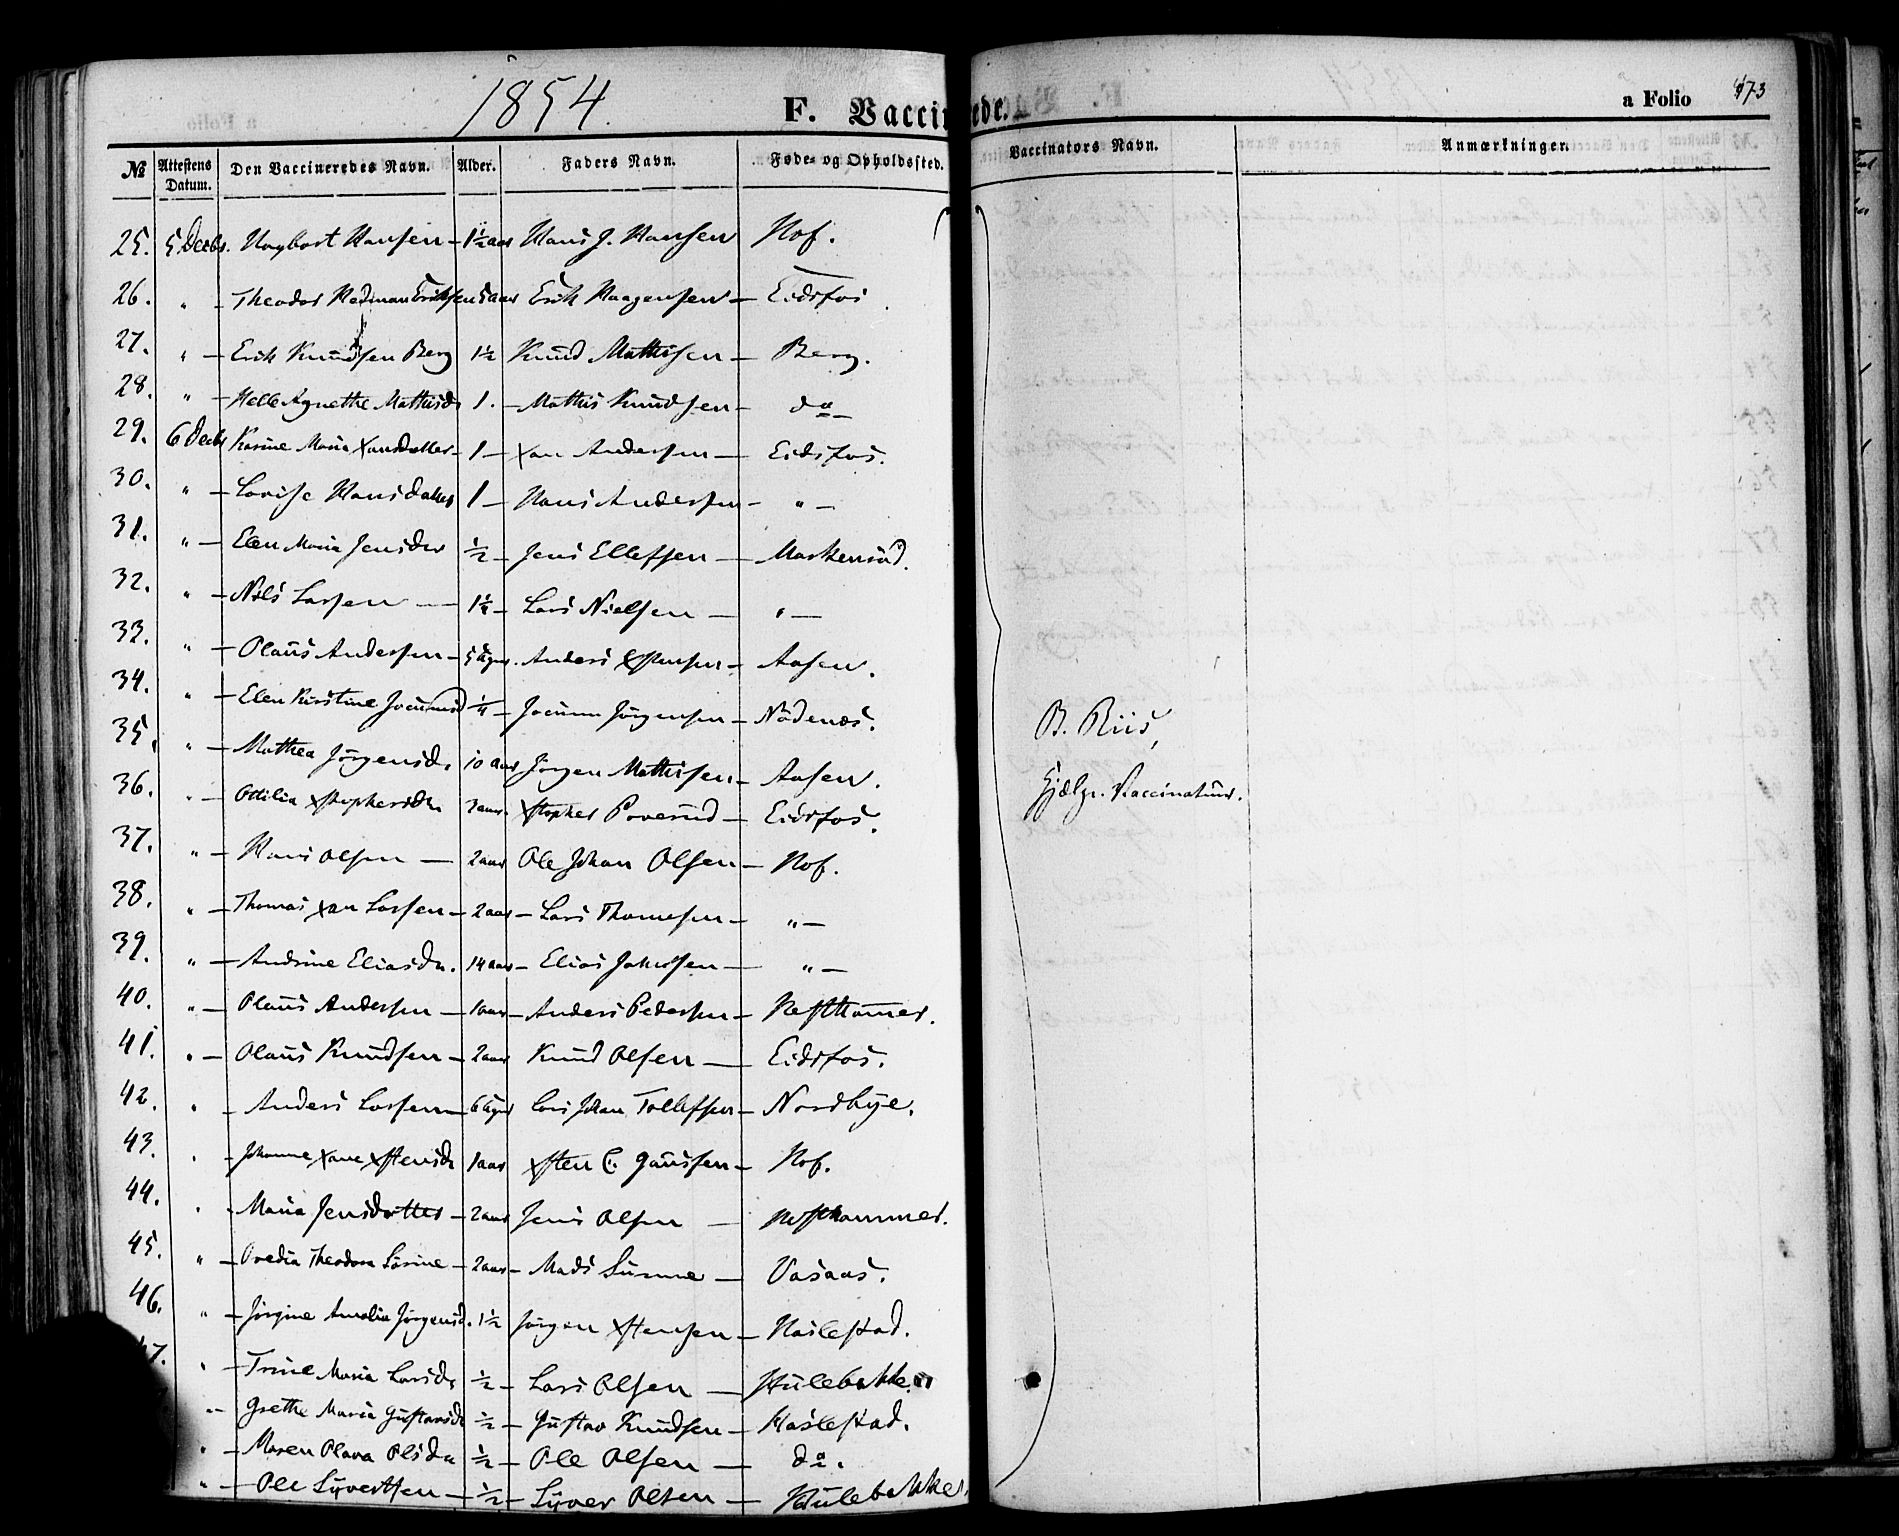 1854.
F. Vaccinerede.
a Folio 473
№ Attestens Datum. Den Vaccineredes Navn. Alder. Faders Navn. Føde- og Opholdssted. Vaccinators Navn. Anmærkninger.
25. 5 Decbr. Hagbart Hansen – 1½ aar Hans J. Hansen Hof.
26. " – Theodor Hedman Eriksen 5 aar Erik Haagensen – Eidsfos
27. " – Erik Knudsen Berg 1½ Knud Mathisen – Berg.
28. " – Helle Agnethe Mathisd. 1. – Mathis Knudsen – do –
29. 6 Decbr Karine Maria Xansdatter – 1 – Xan Andersen – Eidsfos.
30. " – Lovise Hansdatter 1 – Hans Andersen – " –
31. " – Elen Maria Jensdr ½ – Jens Ellefsen –
32. " – Nils Larsen – 1½ – Lars Nielsen – " –
33. " – Olaus Andersen – 5 Uger. Anders Xstensen – Aasen.
34. " – Elen Kirstine Jocumsd ¼ – Jocum Jörgensen – Nödenes.
35. " – Mathea Jörgensd. 10 aar Jörgen Mathisen – Aasen.
36. " – Ottilia Xstophersdr 3 aar. Xstopher Poverud – Eidsfos.
37. " – Hans Olsen – 2 aar Ole Johan Olsen – Hof.
38. " – Thomas Xan Larsen – 2 aar – Lars Thomesen – " –
39. " – Andrine Eliasdr. 14 aar – Elias Jakobsen – " –
40. " – Olaus Andersen – 1 aar – Anders Pedersen – Resthammer.
41. " – Olaus Knudsen – 2 aar Knud Olsen – Eidsfos.
42. " – Anders Larsen – 6 Uger Lars Johan Tollefsen – Nordbye.
43. " Johanne Xane Xstensdr 1 aar Xsten C. Gaussen – Hof.
44. " Maria Jensdatter – 2 aar Jens Olsen – Resthammer.
45. " – Ovedia Theodora Sörine – 2 aar – Mads – Vasaas.
46. " – Jörgine Amalia Jörgensd. 1½ Jörgen Xstensen – Haslestad.
47. " – Trine Maria Larsdr ½ – Lars Olsen – Hulebakken
" – Grethe Maria Gustavsdr ½ – Gustav Knudsen – Haslestad.
" – Maren Olava Olsdr ½ – Ole Olsen – do.
" – Ole Syvertsen – ½ – Syver Olsen – Hulebakken
B. Riis,
Hjælpe-Vaccinatur.